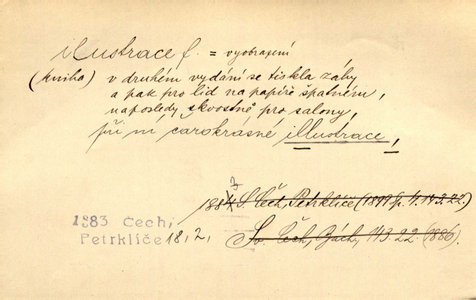 ilustrace f. = vyobrazení
(kniha) v druhém vydání se tiskla záby
a pak pro lid na papíře špatném,
naposledy skvostně pro salony,
při ní čarokrásné illustrace,
1883 S. Čech, Petrklíče (1899 p. 4. 143.22.)
1883 Čech,
Petrklíče 18,2,
Sv. Čech, Bách, 143.22. (1886)